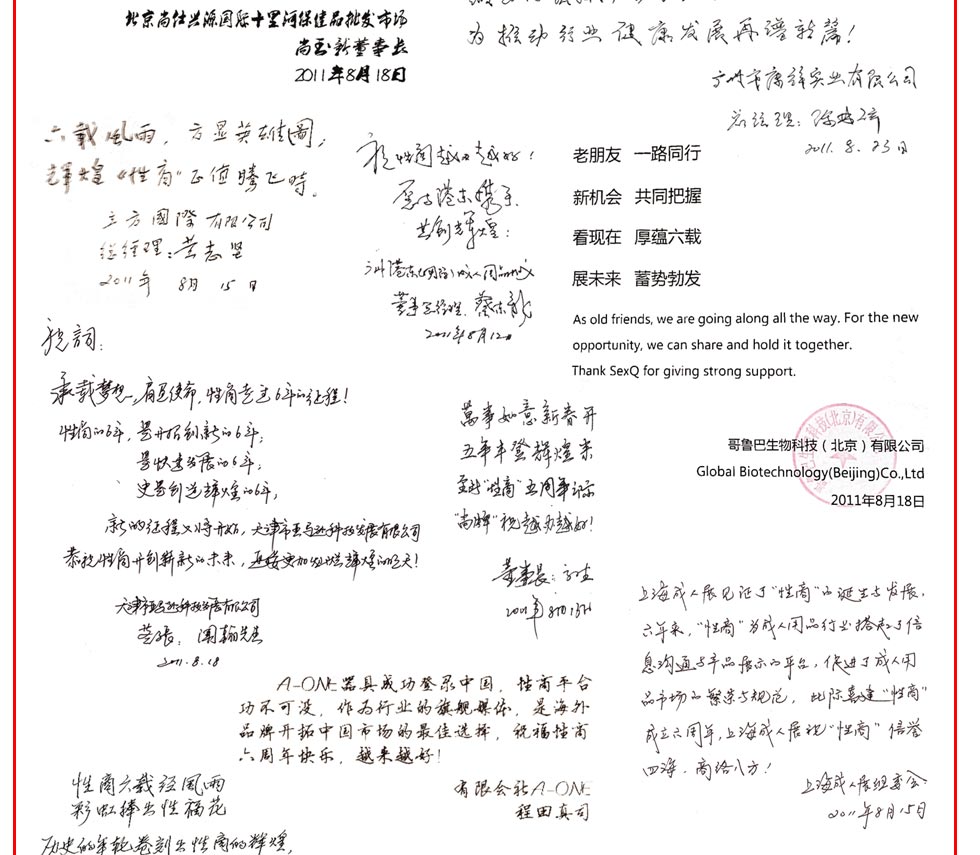 北京尚仕兴源国际十里河保健品批发市场
尚玉新董事长
2011年8月18日
为推动行业健康发展再谱新篇！
广州市康祥实业有限公司
总经理：
2011.8.23日
六载风雨，方显英雄图；
辉煌《性商》正值腾飞时。
立方國際有限公司
总经理：黄志坚
2011年 8月 15日
祝性商越办越好！
共创辉煌！
董事总经理：蔡东龙
2011年8月12日
老朋友 一路同行
新机会 共同把握
看现在 厚蕴六载
展未来 蓄势勃发
As old friends, we are going along all the way. For the new
opportunity, we can share and hold it together.
Thank SexQ for giving strong support.
哥鲁巴生物科技（北京）有限公司
Global Biotechnology(Beijing)Co.,Ltd
2011年8月18日
祝詞：
承载梦想，肩负使命，性商走过6年的征程！
性商的6年，是开拓创新的6年；
是快速发展的6年；
更是创造辉煌的6年，
新的征程又将开始，天津市亚马逊科技发展有限公司
恭祝性商开创崭新的未来，迎接更加灿烂辉煌的明天！
天津市亚马逊科技发展有限公司
2011.8.18
萬事如意新春开
五年丰登辉煌来
至此"性商"五周年之际
"尚牌"祝越办越好！
董事長：
上海成人展见证了"性商"的诞生与发展。
六年来，"性商"为成人用品行业搭起了信
息沟通与产品展示的平台，促进了成人用
品市场的繁荣与规范，此际喜逢"性商"
成立六周年，上海成人展祝"性商"信誉
四海，商络八方！
上海成人展组委会
2011年8月15日
A-ONE器具成功登录中国，性商平台
功不可没，作为行业的旗舰媒体，是海外
品牌开拓中国市场的最佳选择，祝福性商
六周年快乐，越来越好！
有限会社A-ONE
程田真司
性商六载经风雨
彩虹捧出性福花
历史的年轮卷刻出性商的辉煌，